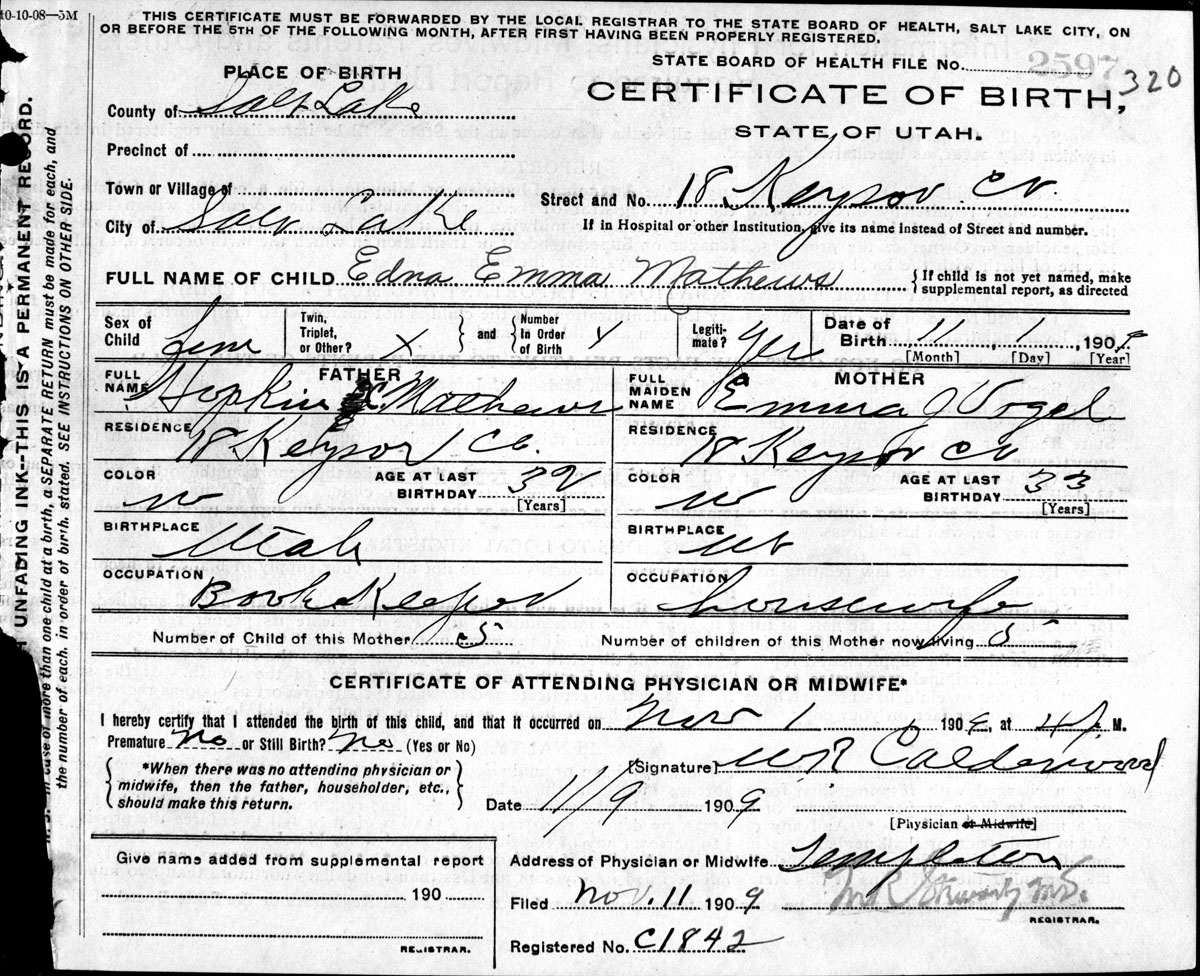 10-10-08—5M
THIS CERTIFICATE MUST BE FORWARDED BY THE LOCAL REGISTRAR TO THE STATE BOARD OF HEALTH, SALT LAKE CITY, ON
OR BEFORE THE 5TH OF THE FOLLOWING MONTH, AFTER FIRST HAVING BEEN PROPERLY REGISTERED.
STATE BOARD OF HEALTH FILE No. 2597
320
PLACE OF BIRTH
CERTIFICATE OF BIRTH,
STATE OF UTAH.
County of Salt Lake
Precinct of
Town or Village of
Street and No. 18 Keysor
City of Salt Lake
If in Hospital or other Institution, give its name instead of Street and number.
FULL NAME OF CHILD Edna Emma Mathews
{If child is not yet named, make
supplemental report, as directed
Sex of Child Fem
Twin, Triplet, or Other? X
and {Number In Order of Birth
Legitimate? Yes
Date of Birth 11 1, 190
[Month] [Day] [Year]
FATHER
FULL NAME Hopkin Mathews
RESIDENCE 18 Keysor
COLOR W
AGE AT LAST BIRTHDAY 32
[Years]
BIRTHPLACE Utah
OCCUPATION Book Keeper
MOTHER
FULL MAIDEN NAME Emma J Vogel
RESIDENCE 18 Keysor
COLOR W
AGE AT LAST BIRTHDAY 33
[Years]
BIRTHPLACE Ut
OCCUPATION housewife
Number of Child of this Mother 5
Number of children of this Mother now living 5
CERTIFICATE OF ATTENDING PHYSICIAN OR MIDWIFE*
I hereby certify that I attended the birth of this child, and that it occurred on Nov 1, 1909, at 4 M.
Premature No or Still Birth? No (Yes or No)
{*When there was no attending physician or
midwife, then the father, householder, etc.,
should make this return.}
(Signature) W R Calderwood
Date 11/9 1909
[Physician or Midwife]
Give name added from supplemental report
190
REGISTRAR.
Address of Physician or Midwife Templeton
Filed Nov. 11 1909
M.D.
REGISTRAR.
Registered No. C1842
UNFADING INK—THIS IS A PERMANENT RECORD.
in case of more than one child at a birth, a SEPARATE RETURN must be made for each, and
the number of each, in order of birth, stated. SEE INSTRUCTIONS ON OTHER SIDE.